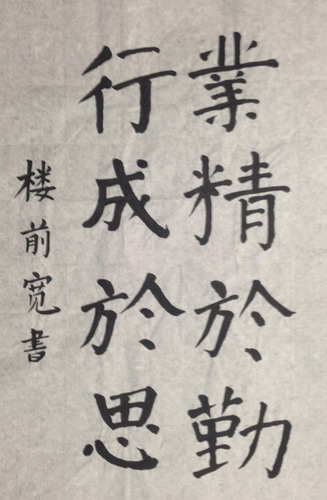 業精於勤
行成於思
楼前宽書